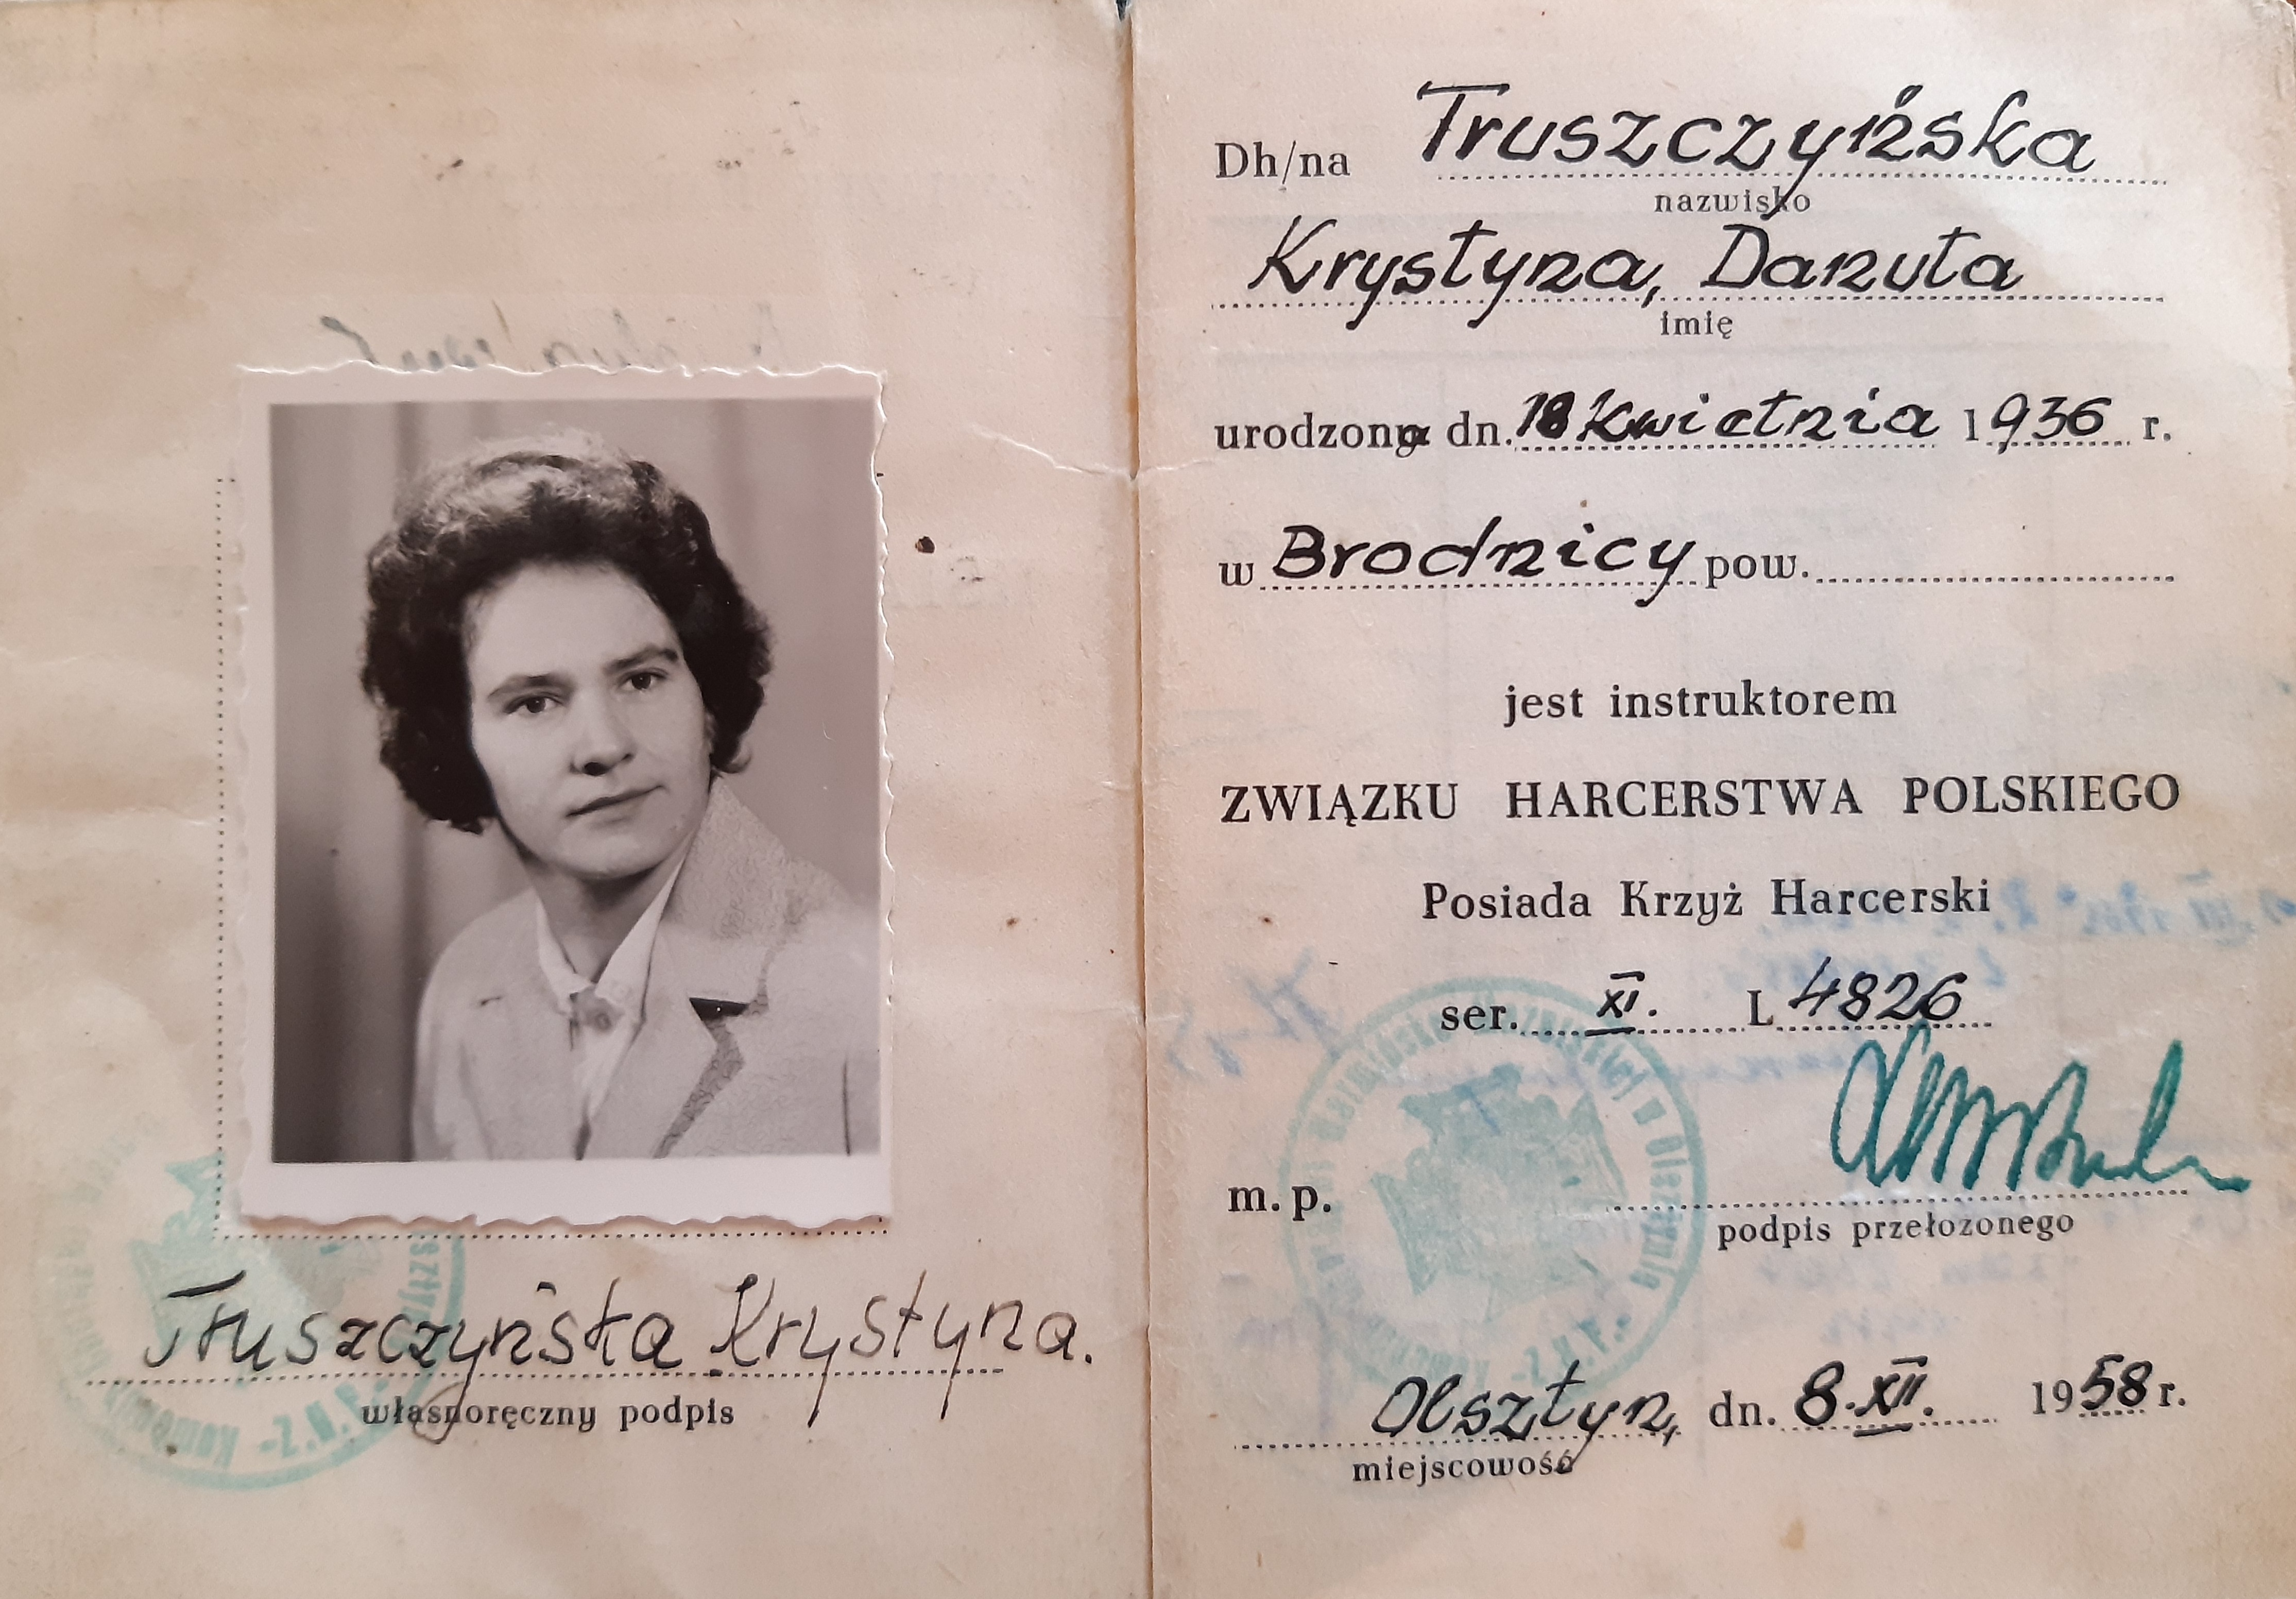 Truszczyńska Krystyna.
własnoręczny podpis
Dh/na Truszczyńska
nazwisko
Krystyna, Danuta
imię
urodzona dn. 18 kwietnia 1936 r.
w Brodnicy pow.
jest instruktorem
ZWIĄZKU HARCERSTWA POLSKIEGO
Posiada Krzyż Harcerski
ser. XI. L 4826
m. p.
podpis przełozonego
Olsztyn, dn. 8.XII. 1958 r.
miejscowość